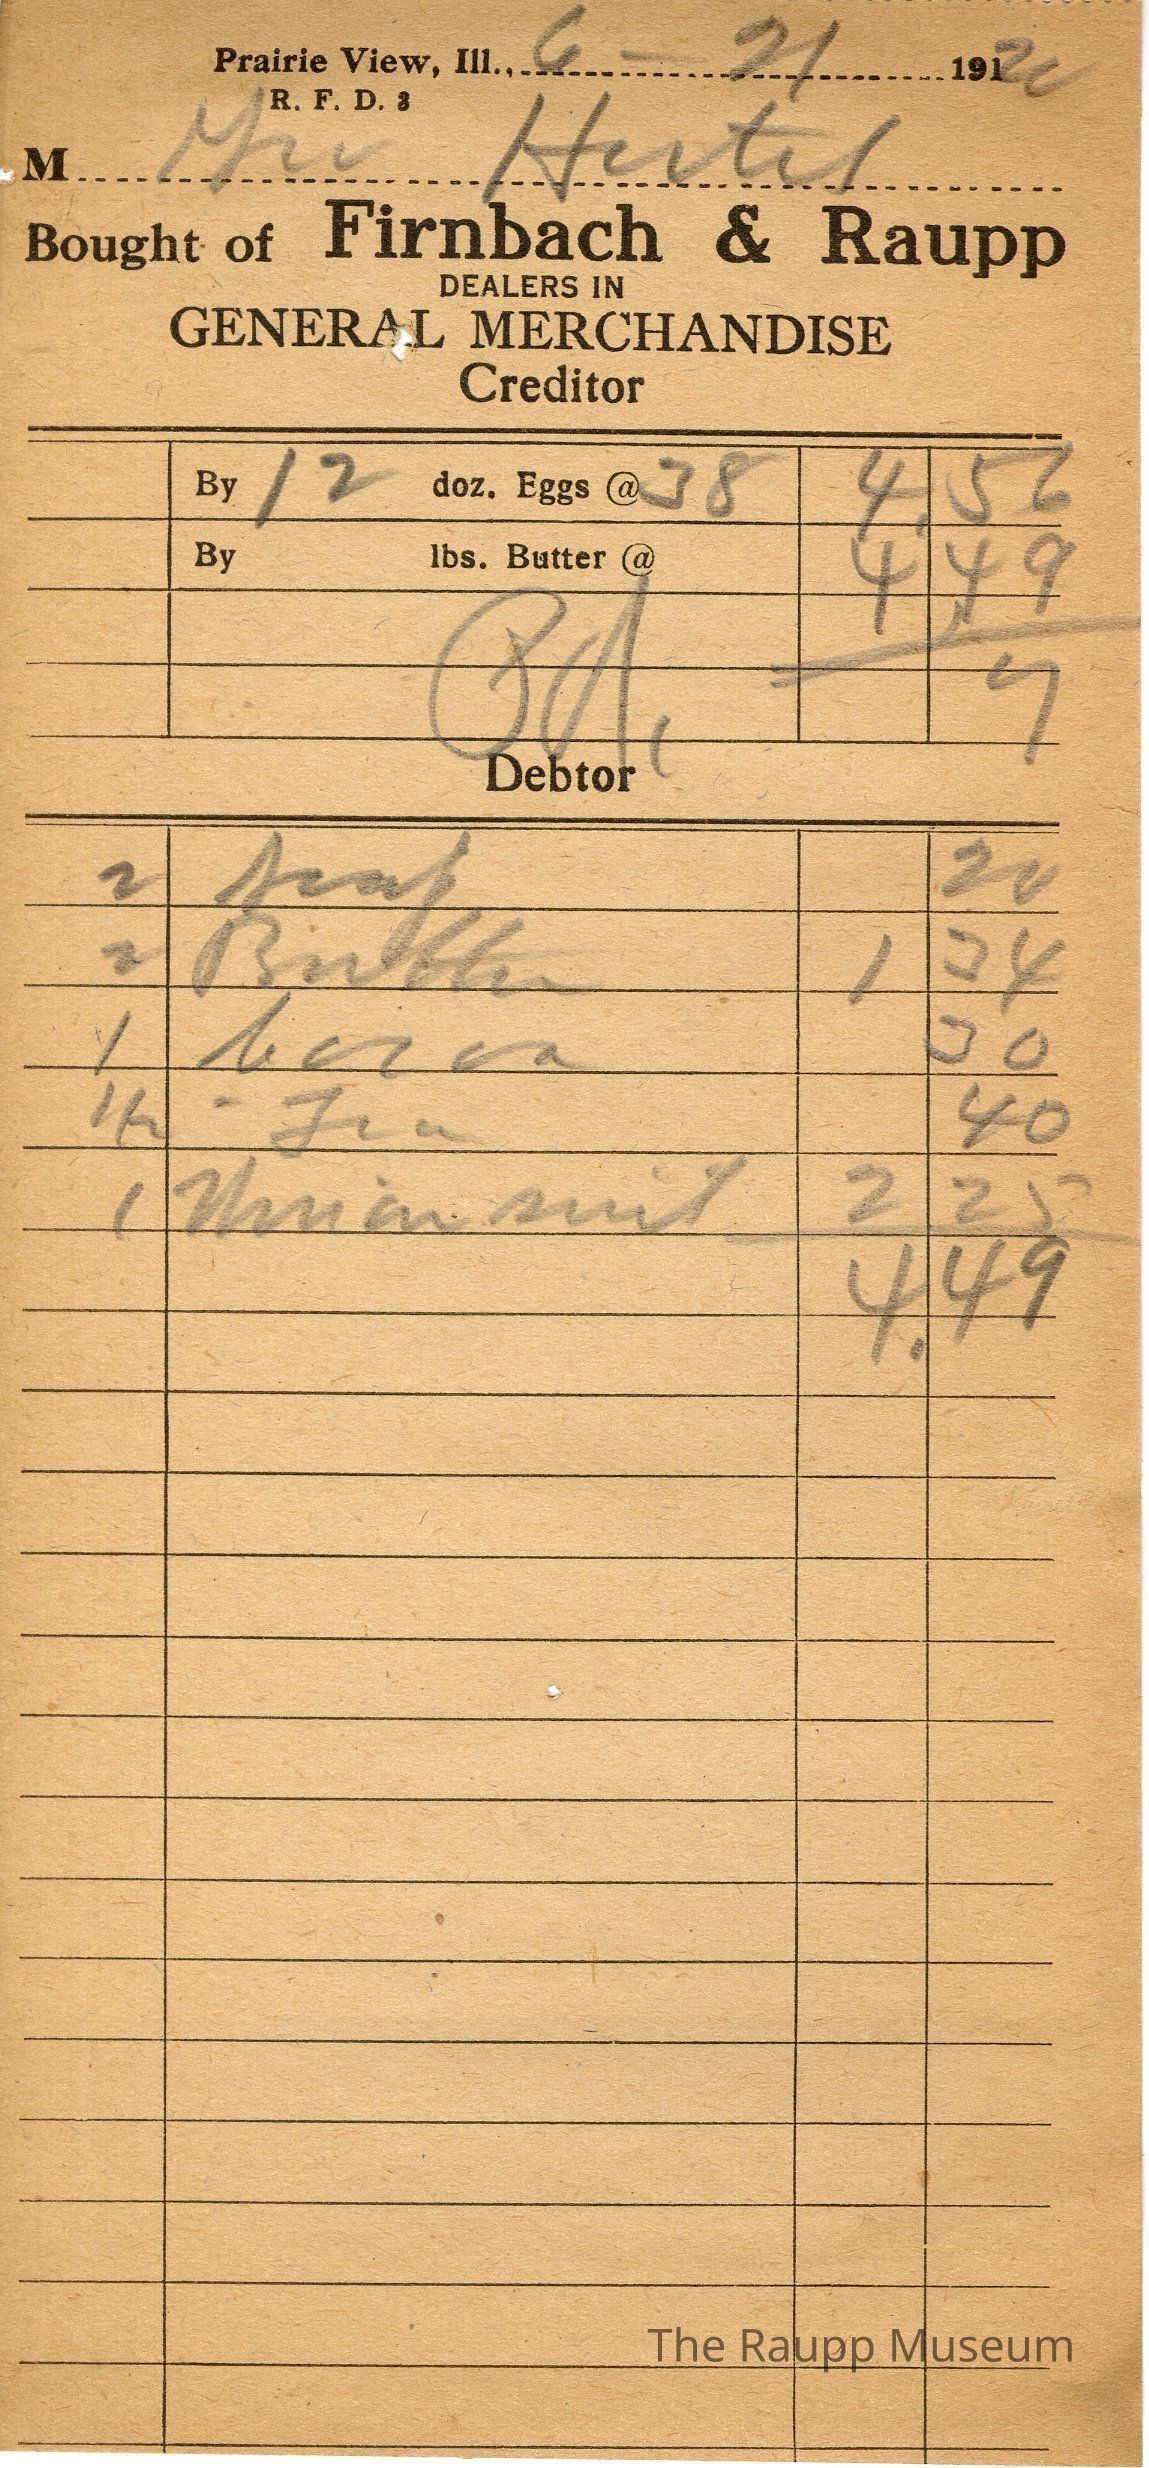 Prairie View, Ill., 6 - 21 1920
R. F. D. 3
M Mrs Hertel
Bought of Firnbach & Raupp
DEALERS IN
GENERAL MERCHANDISE
Creditor
By 12 doz. Eggs @ 38 4.56
By lbs. Butter @ 4.49
Pd. 7
Debtor
2 Soap 20
2 Butter 1 34
1 Cocoa 30
1/2 - Tea 40
1 Union suit 2 25
4.49
The Raupp Museum